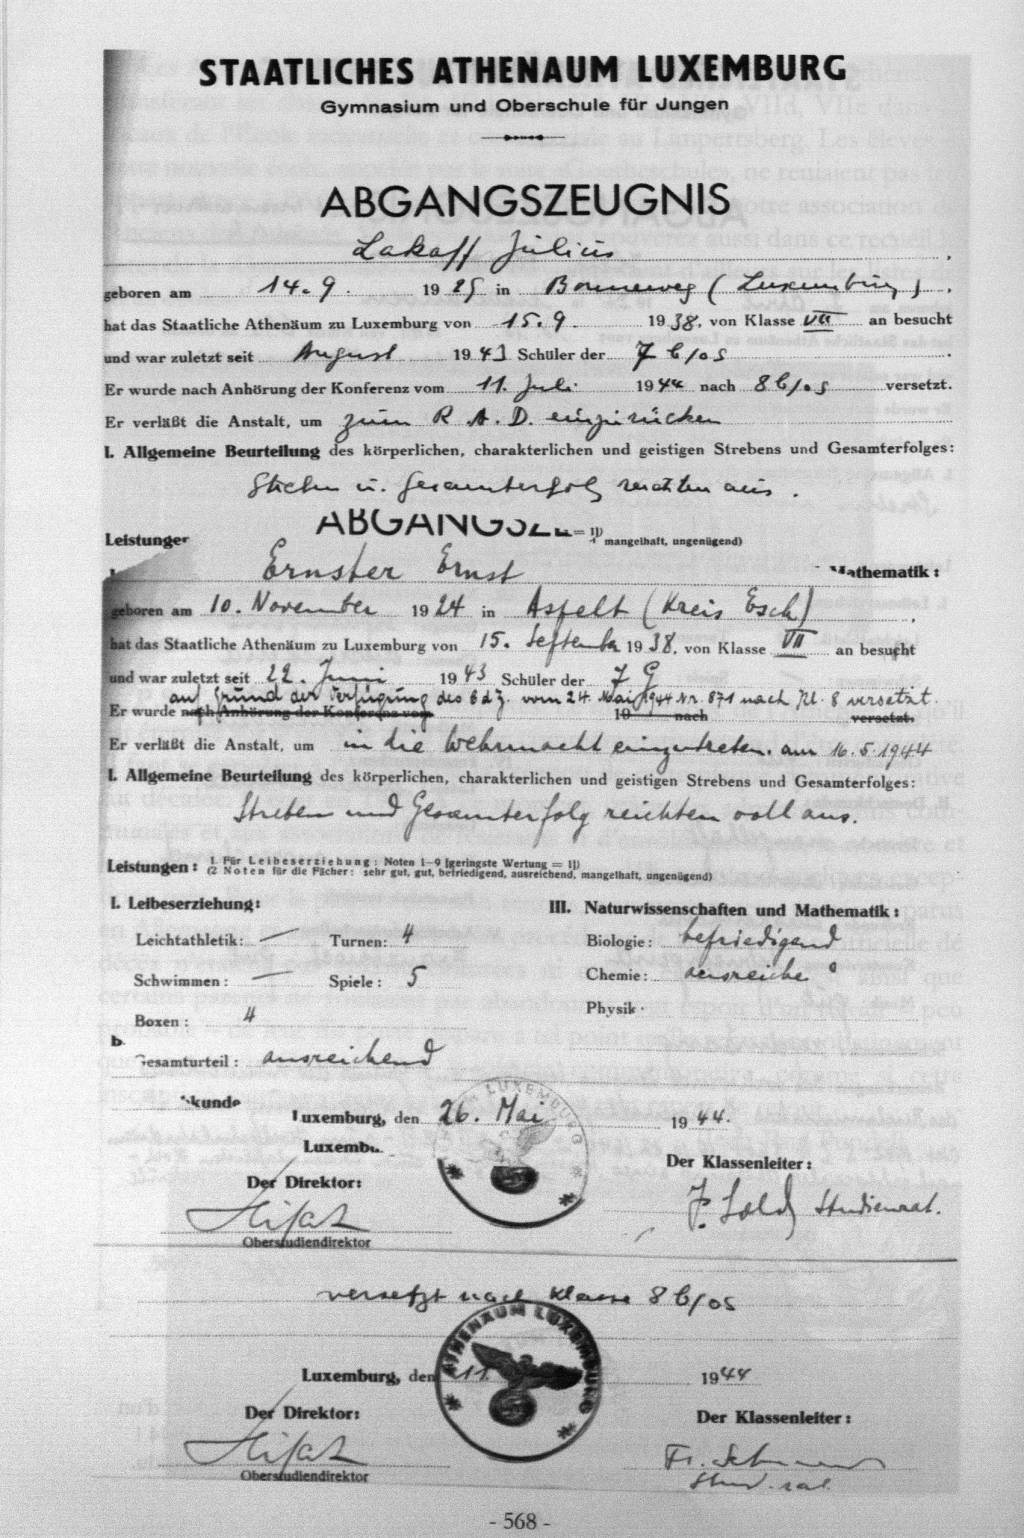 STAATLICHES ATHENAUM LUXEMBURG
Gymnasium und Oberschule für Jungen
ABGANGSZEUGNIS
Lakaff Julius
geboren am 14. 9. 1925 in Bonneweg (Luxemburg).
hat das Staatliche Athenäum zu Luxemburg von 15. 9. 1938, von Klasse VII an besucht
und war zuletzt seit August 1943 Schüler der 7 b/os
Er wurde nach Anhörung der Konferenz vom 11. Juli 1944 nach 8 b/os versetzt.
Er verläßt die Anstalt, um zum R. A. D. einzurücken
I. Allgemeine Beurteilung des körperlichen, charakterlichen und geistigen Strebens und Gesamterfolges:
Streben u. Gesamterfolg reichten aus.
ABGANGSZE
Leistungen = 1) mangelhaft, ungenügend)
Ernster Ernst
Mathematik:
geboren am 10. November 1924 in Aspelt (Kreis Esch).
hat das Staatliche Athenäum zu Luxemburg von 15. September 1938, von Klasse VII an besucht
und war zuletzt seit 22. Juni 1943 Schüler der 7 G
auf Grund der Verfügung des CdZ. vom 24. Mai 1944 Nr. 871 nach Kl. 8 versetzt.
Er wurde nach Anhörung der Konferenz vom 19 nach versetzt.
Er verläßt die Anstalt, um in die Wehrmacht einzutreten. am 16. 5. 1944
I. Allgemeine Beurteilung des körperlichen, charakterlichen und geistigen Strebens und Gesamterfolges:
Streben und Gesamterfolg reichten voll aus.
Leistungen: 1. Für Leibeserziehung: Noten 1-9 (geringste Wertung = 1)
(2 Noten für die Fächer: sehr gut, gut, befriedigend, ausreichend, mangelhaft, ungenügend)
I. Leibeserziehung:
Leichtathletik: — Turnen: 4
Schwimmen: — Spiele: 5
Boxen: 4
Gesamturteil: ausreichend
III. Naturwissenschaften und Mathematik:
Biologie: befriedigend
Chemie: ausreiche
Physik
kunde
Luxemburg, den 26. Mai 1944.
LUXEMBURG
Luxembu
Der Direktor:
Oberstudiendirektor
Der Klassenleiter:
Studienrat.
versetzt nach Klasse 8 b/os
ATHENAUM LUXEMBURG
Luxemburg, den 11. 1944
Der Direktor:
Oberstudiendirektor
Der Klassenleiter:
Stud. rat.
- 568 -